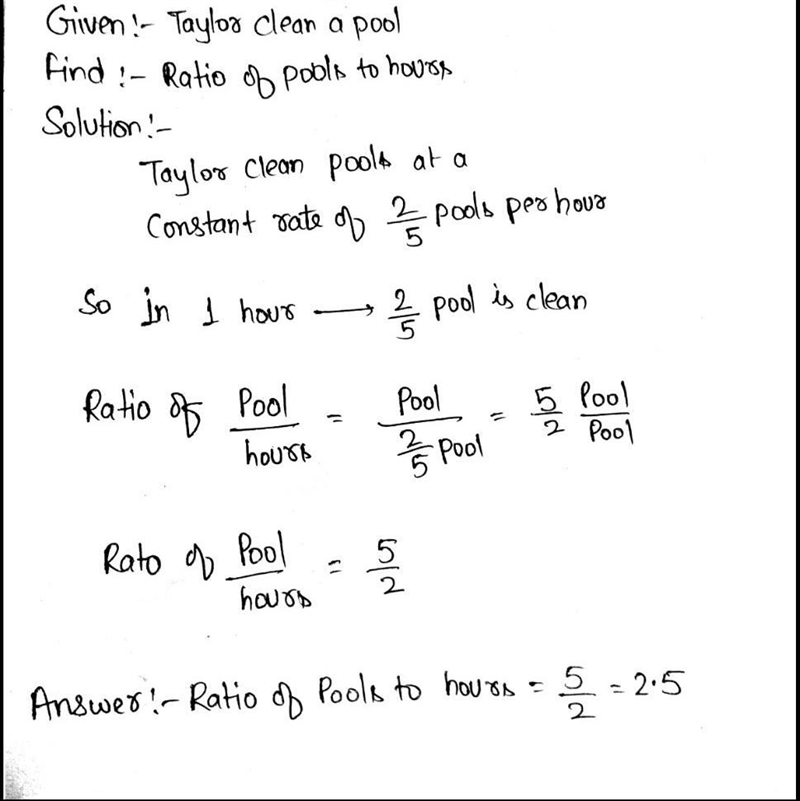 Given:- Taylor clean a pool
Find :- Ratio of pools to hours
Solution:-
Taylor clean pools at a
Constant rate of 2/5 pools per hour
So in 1 hour → 2/5 pool is clean
Ratio of Pool/hours = Pool/(2/5 Pool) = 5/2 Pool/Pool
Rato of Pool/hours = 5/2
Answer:- Ratio of Pools to hours = 5/2 = 2.5